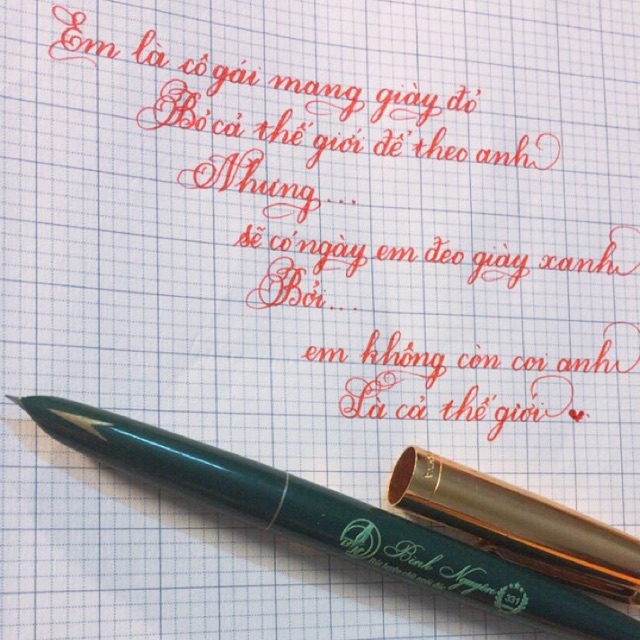 Em là cô gái mang giày đỏ
Bỏ cả thế giới để theo anh
Nhưng...
sẽ có ngày em đéo giày xanh
Bởi...
em không còn coi anh
Là cả thế giới
Bình Nguyên